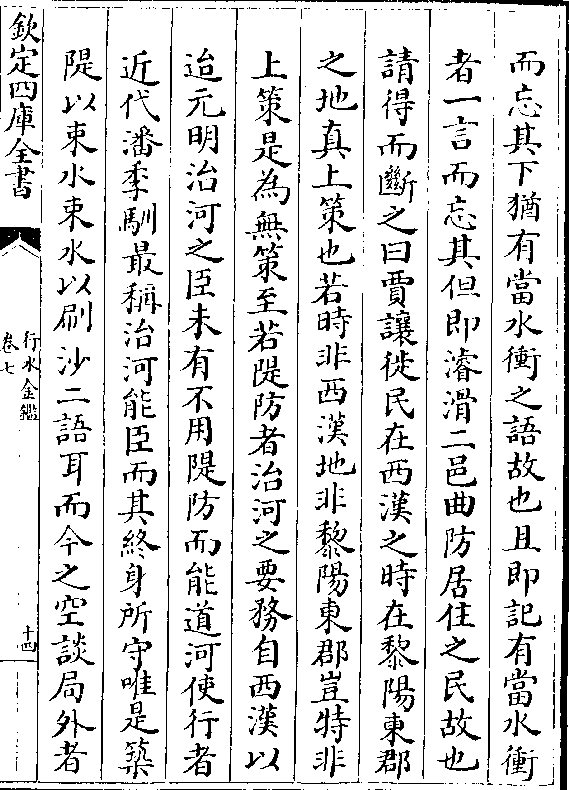 而忘其下猶有當水衝之語故也且即記有當水衝
者一言而忘其但即濬滑二邑曲防居住之民故也
請得而斷之曰賈讓徙民在西漢之時在黎陽東郡
之地真上策也若時非西漢地非黎陽東郡豈特非
上策是為無策至若隄防者治河之要務自西漢以
迨元明治河之臣未有不用隄防而能道河使行者
近代潘季馴最稱治河能臣而其終身所守唯是築
隄以束水束水以刷沙二語耳而今之空談局外者
欽定四庫全書
行水金鑑
卷七
十四